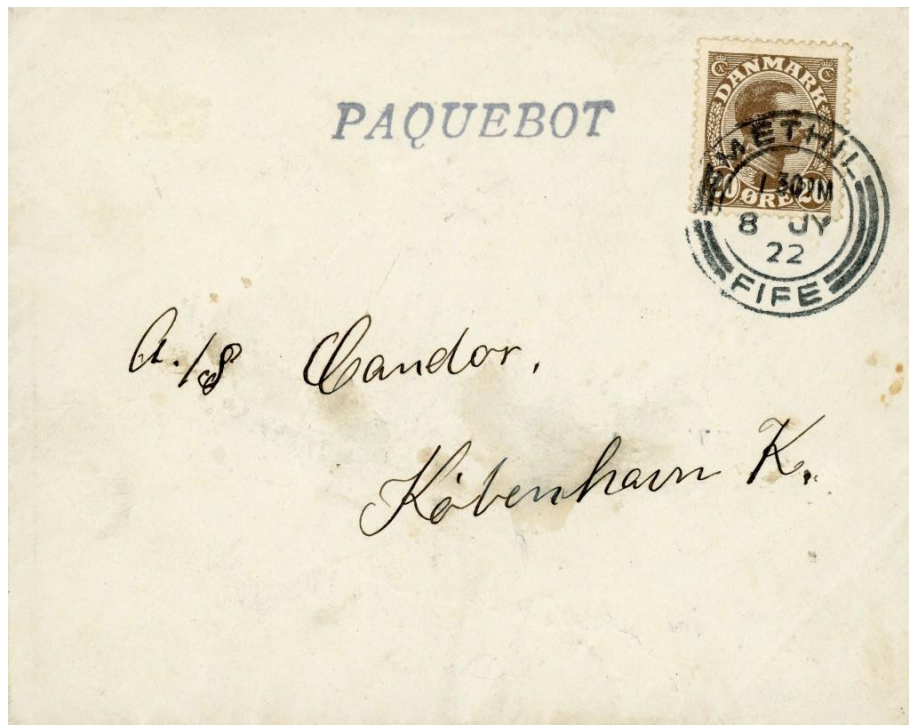 PAQUEBOT
DANMARK
20 ØRE 20
METHIL
1 30PM
8 JY
22
FIFE
A./S Candor.
København K.